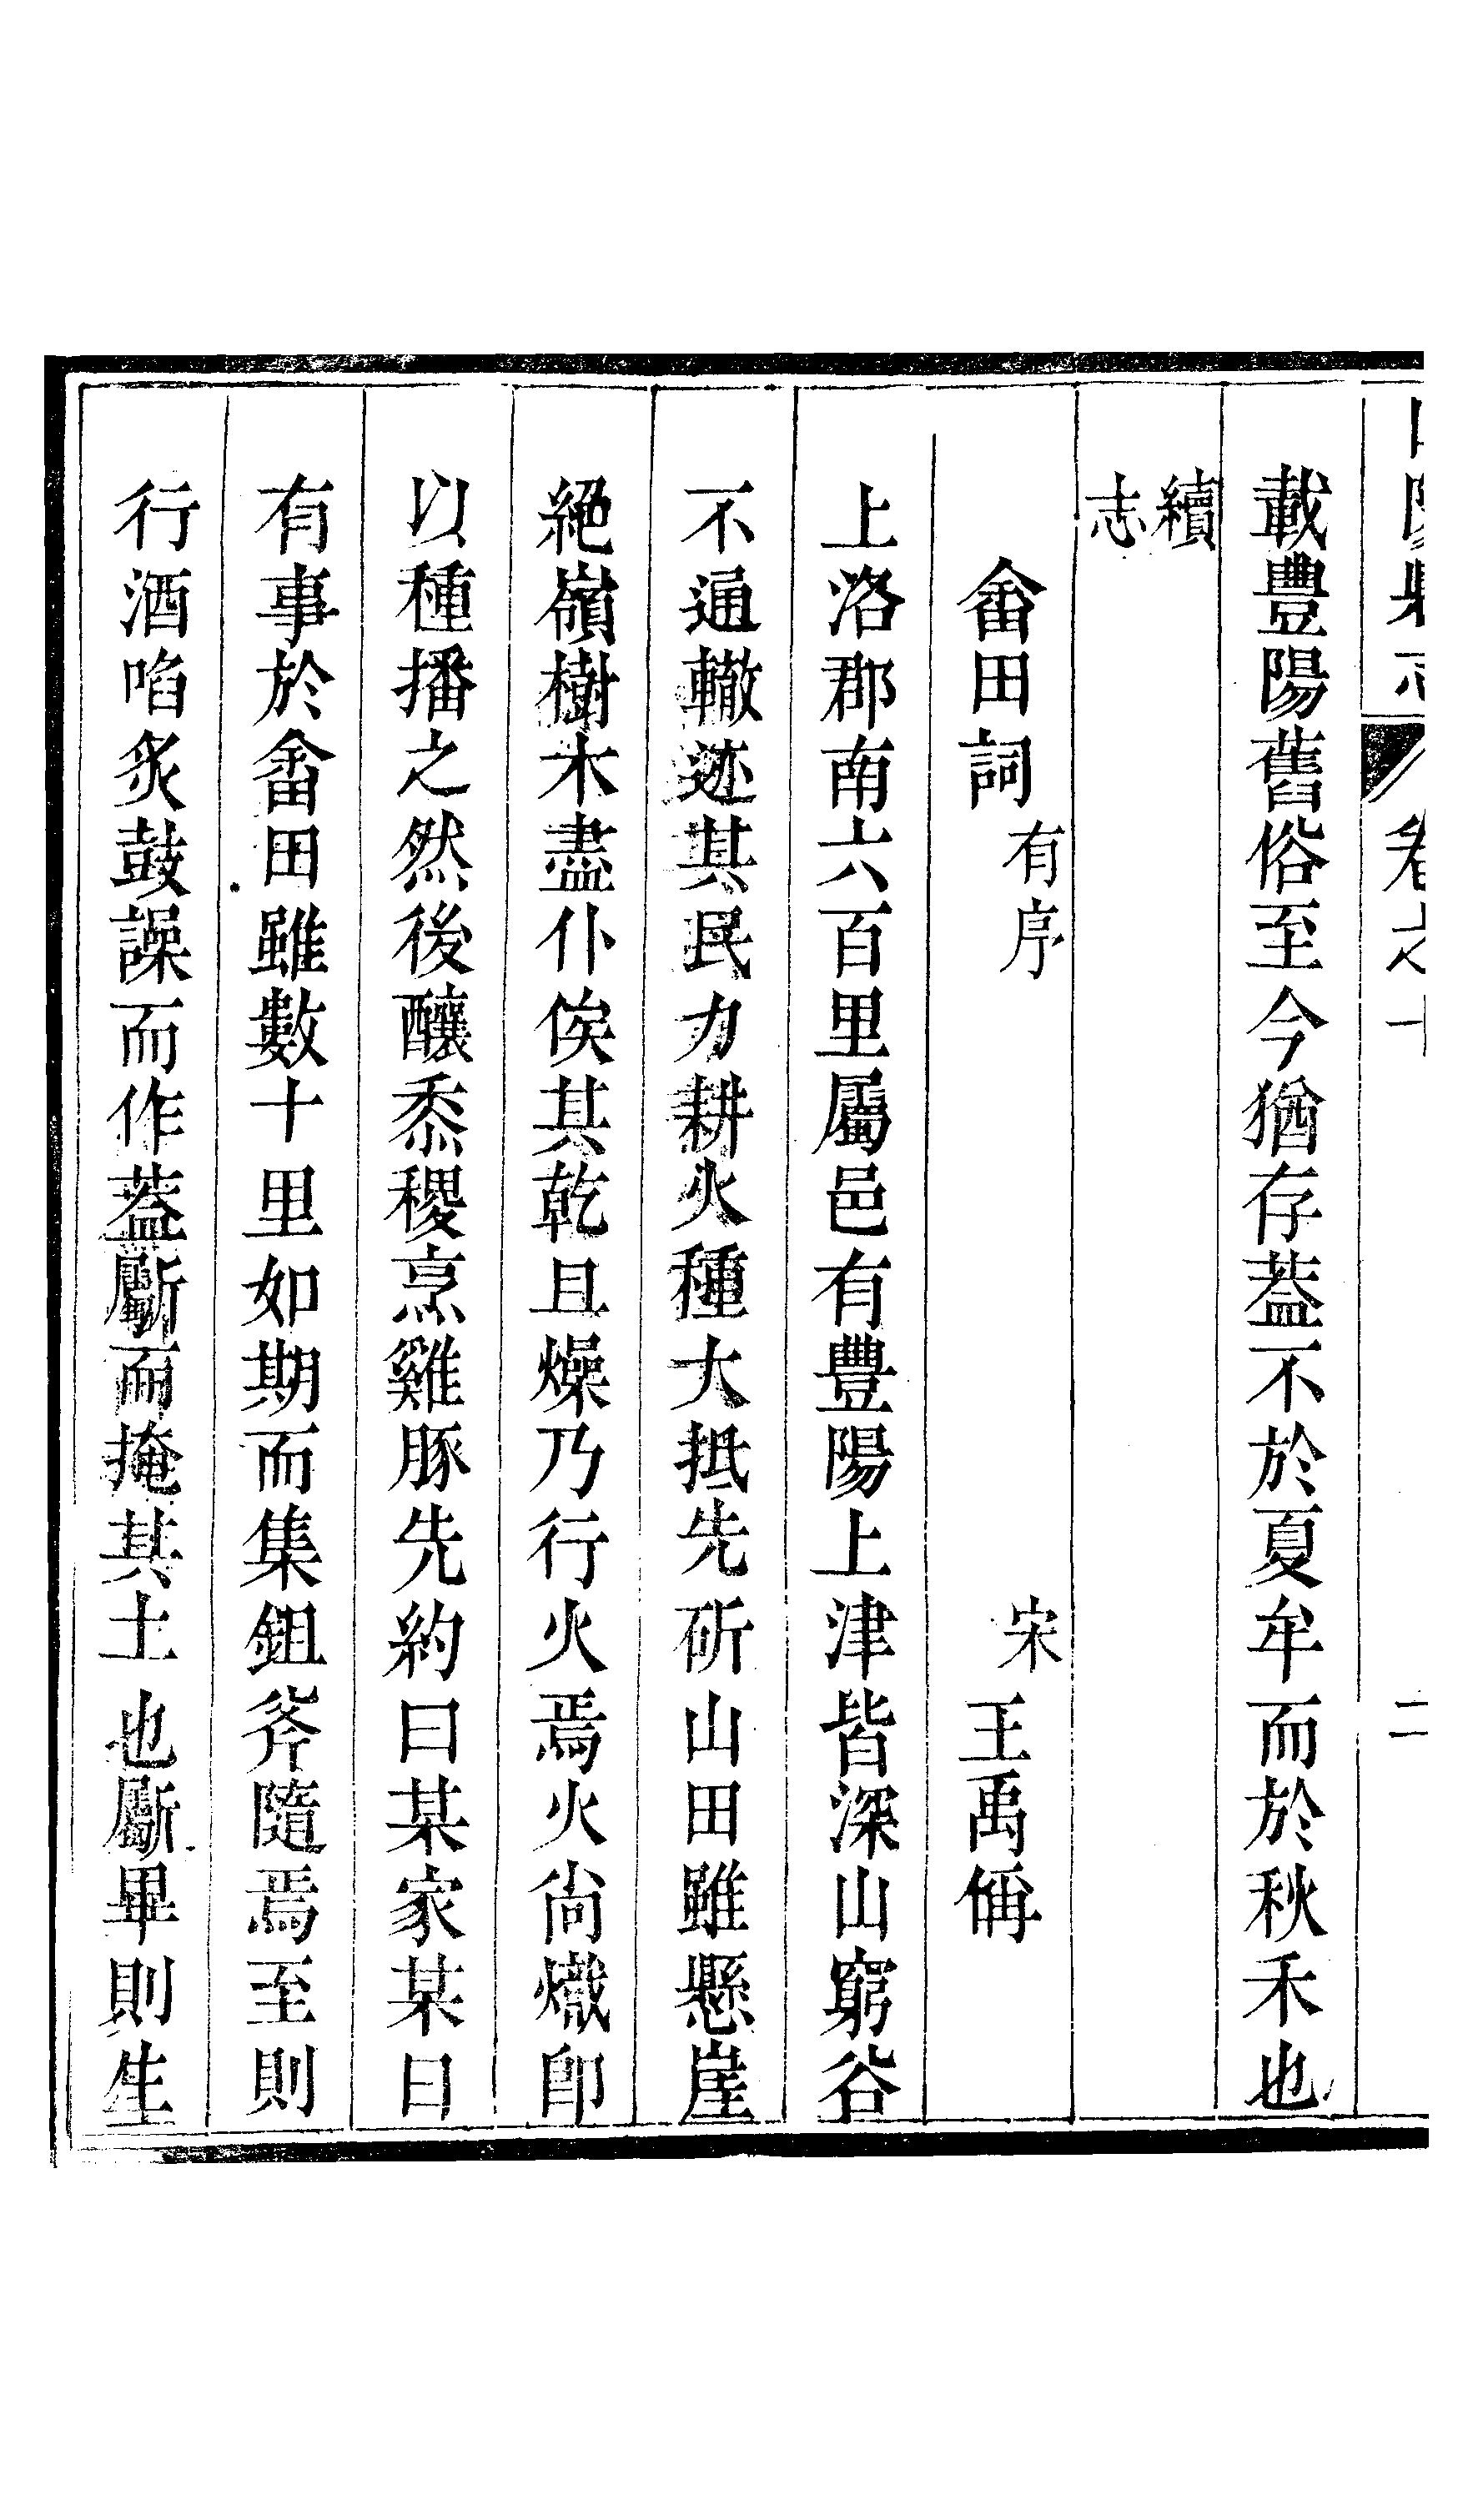 縣志 卷之十 二
載豐陽舊俗至今猶存葢不於夏牟而於秋禾也
續志
畬田詞有序 宋王禹偁
上洛郡南六百里屬邑有豐陽上津皆深山窮谷
不通轍迹其民力耕火種大抵先斫山田雖懸崖
絕嶺樹木盡仆俟其乾且燥乃行火焉火尚熾卽
以種播之然後釀黍稷烹雞豚先約曰某家某日
有事於畬田雖數十里如期而集鉏斧隨焉至則
行酒啗炙鼓譟而作葢斸而掩其土也斸畢則生